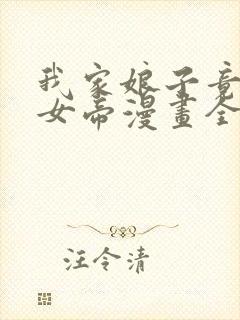 我家娘子竟
女帝漫畫全
汪令清